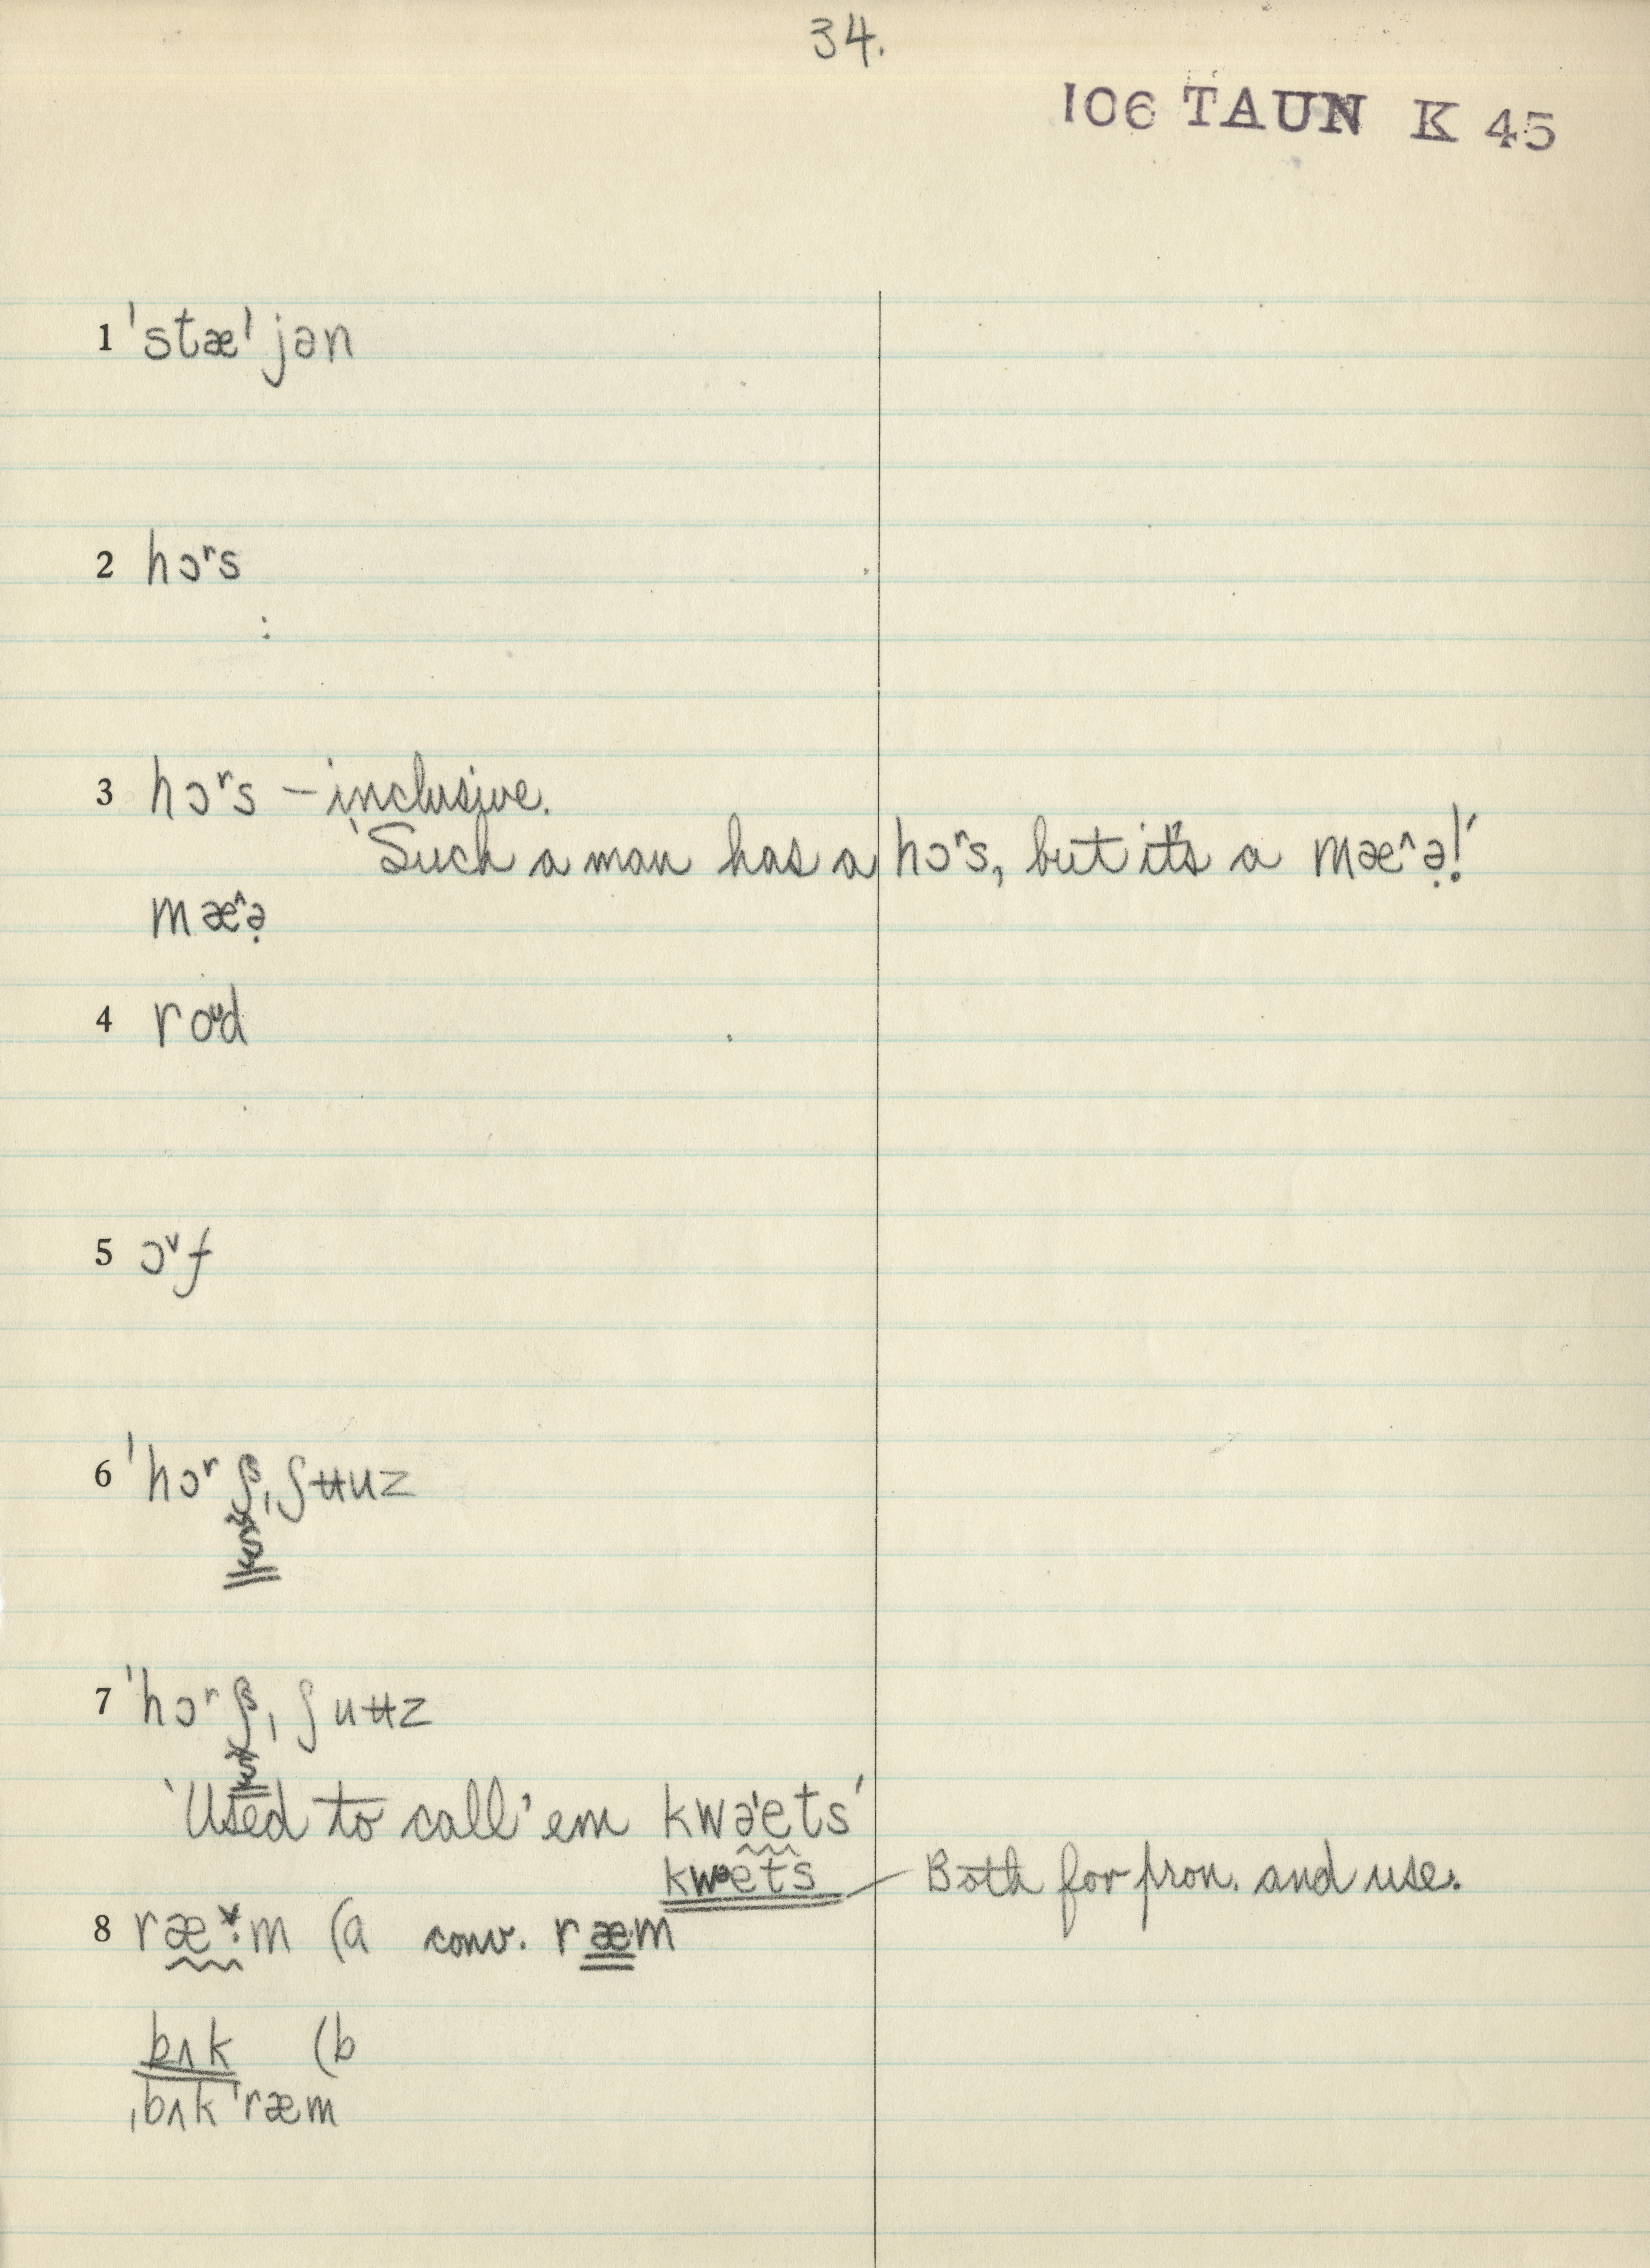 34.
106 TAUN K 45
1 ˈstæˈjən
2 hɔʳs
3 hɔʳs – inclusive.
'Such a man has a hɔʳs, but it's a mæ^ə̣!'
mæ^ə̣
4 roᵘd
5 ɔᵛf
6 ˈhɔʳʃˌʃʉuz
7 ˈhɔʳʃˌʃuʉz
'Used to call 'em kwəˈets'
kwəets — Both for pron. and use.
8 ræ˅·m (a conv. ræm
bʌk (b
ˌbʌkˈræm